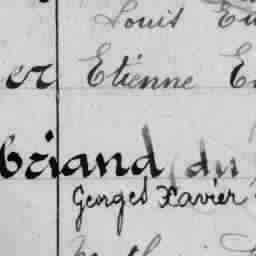 Louis
er Etienne
briand du
Georges Xavier